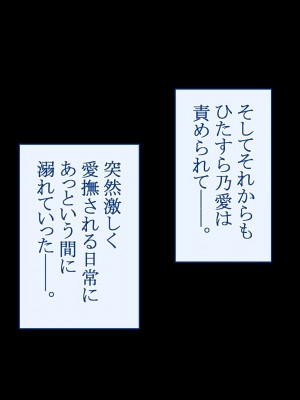 そしてそれからも
ひたすら乃愛は
責められて――。
突然激しく
愛撫される日常に
あっという間に
溺れていった――。